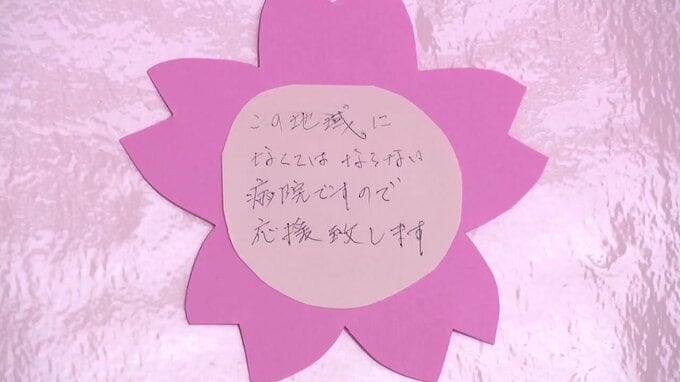 この地域に
なくてはならない
病院ですので
応援致します